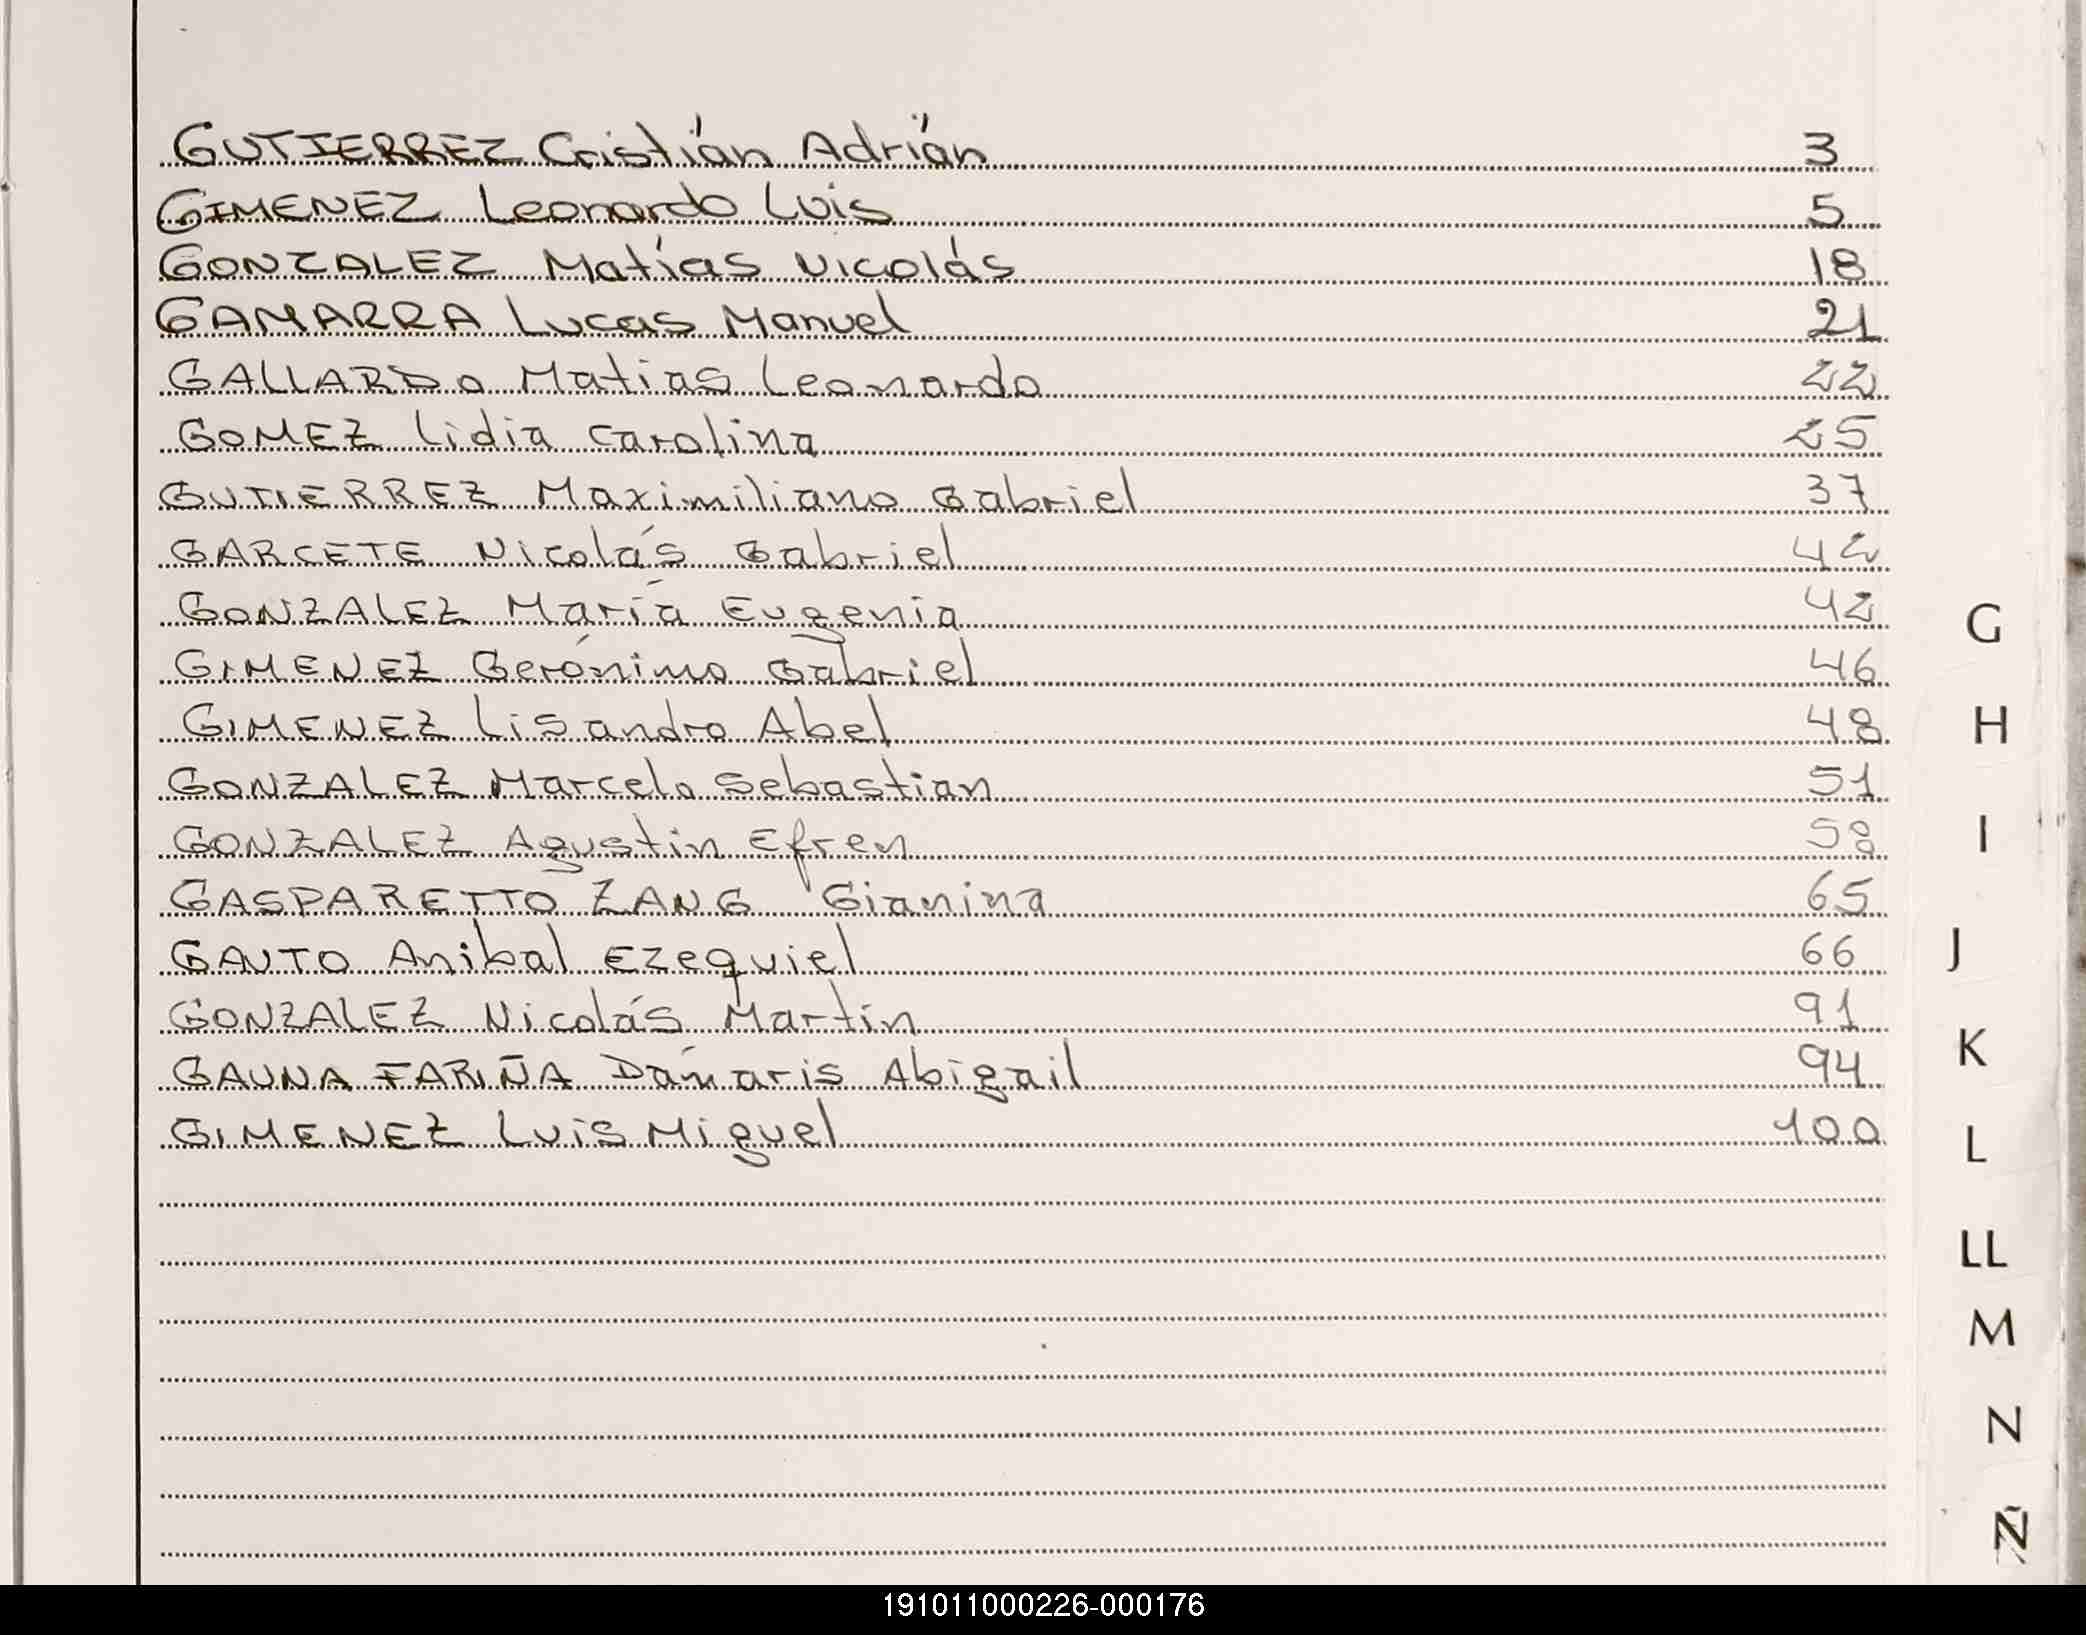 GUTIERREZ Cristián Adrián 3
GIMENEZ Leonardo Luis 5
GONZALEZ Matías Nicolás 18
GAMARRA Lucas Manuel 21
GALLARDO Matias Leonardo 22
GOMEZ Lidia Carolina 25
GUTIERREZ Maximiliano Gabriel 37
GARCETE Nicolás Gabriel 42
GONZALEZ María Eugenia 42
GIMENEZ Gerónimo Gabriel 46
GIMENEZ Lisandro Abel 48
GONZALEZ Marcelo Sebastian 51
GONZALEZ Agustin Efren 58
GASPARETTO ZANG Gianina 65
GAUTO Anibal Ezequiel 66
GONZALEZ Nicolás Martin 91
GAUNA FARIÑA Dámaris Abigail 94
GIMENEZ Luis Miguel 100
G
H
I
J
K
L
LL
M
N
Ñ
191011000226-000176